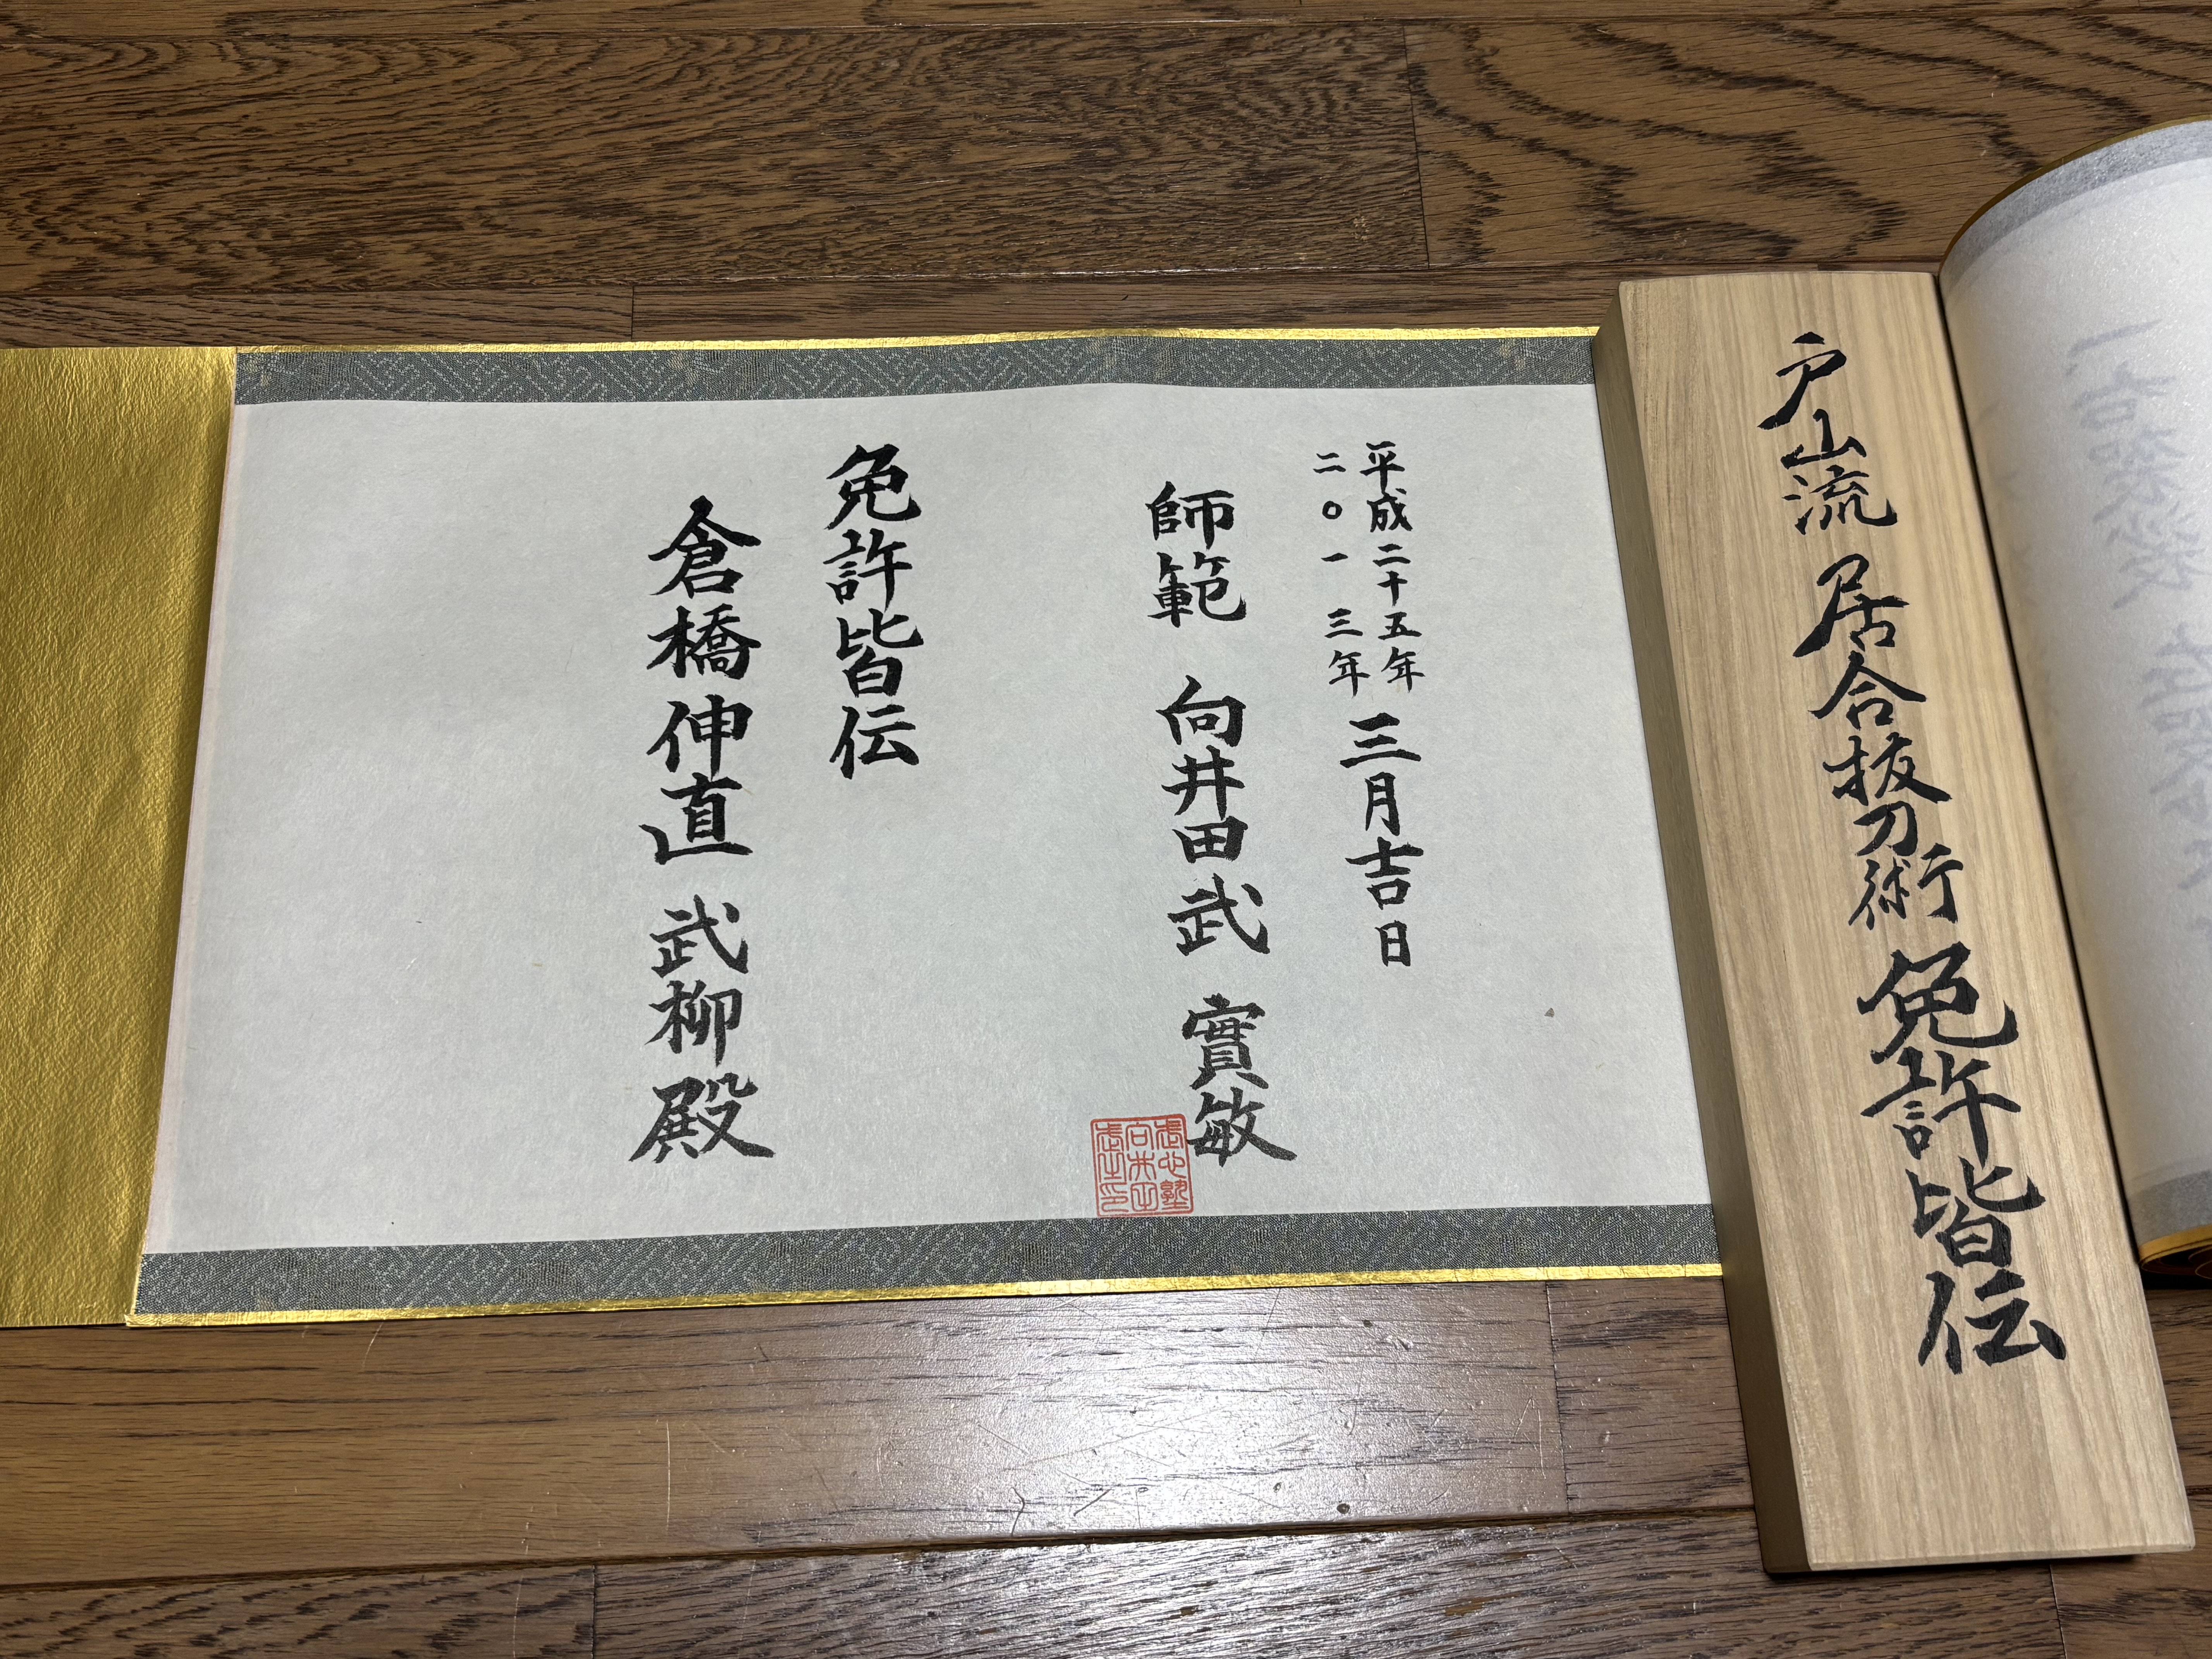 戸山流 居合抜刀術 免許皆伝
平成二十五年
二〇一三年
三月吉日
師範 向井田武 實敏
免許皆伝
倉橋伸直 武柳殿